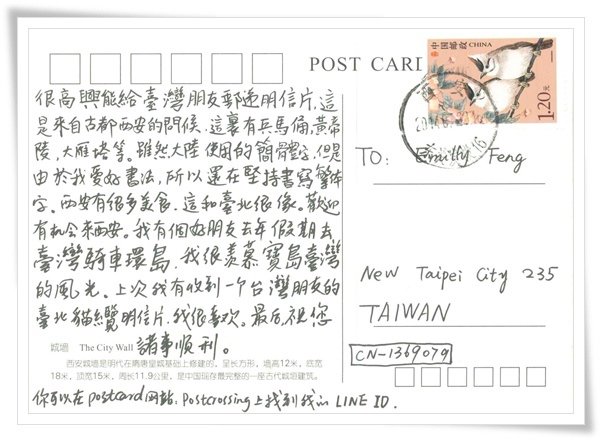 POST CARD
中国邮政 CHINA
1.20元
很高興能給臺灣朋友郵遞明信片,這
是来自古都西安的問候,這裏有兵馬俑,黃帝
陵,大雁塔等。雖然大陸使用的簡體字,但是
由於我愛好書法,所以還在堅持書寫繁體
字。西安有很多美食,這和臺北很像。歡迎
有机会来西安。我有個好朋友去年假期去
臺灣騎車環島,我很羡慕寶島臺灣
的風光。上次我有收到一个台灣朋友的
臺北貓纜明信片,我很喜欢。最后祝您
諸事順利。
TO: Emilly Feng
New Taipei City 235
TAIWAN
CN-1369079
城墙 The City Wall
西安城墙是明代在隋唐皇城基础上修建的,呈长方形,墙高12米,底宽
18米,顶宽15米,周长11.9公里,是中国现存最完整的一座古代城垣建筑。
你可以在postcard网站:Postcrossing上找到我的 LINE ID.